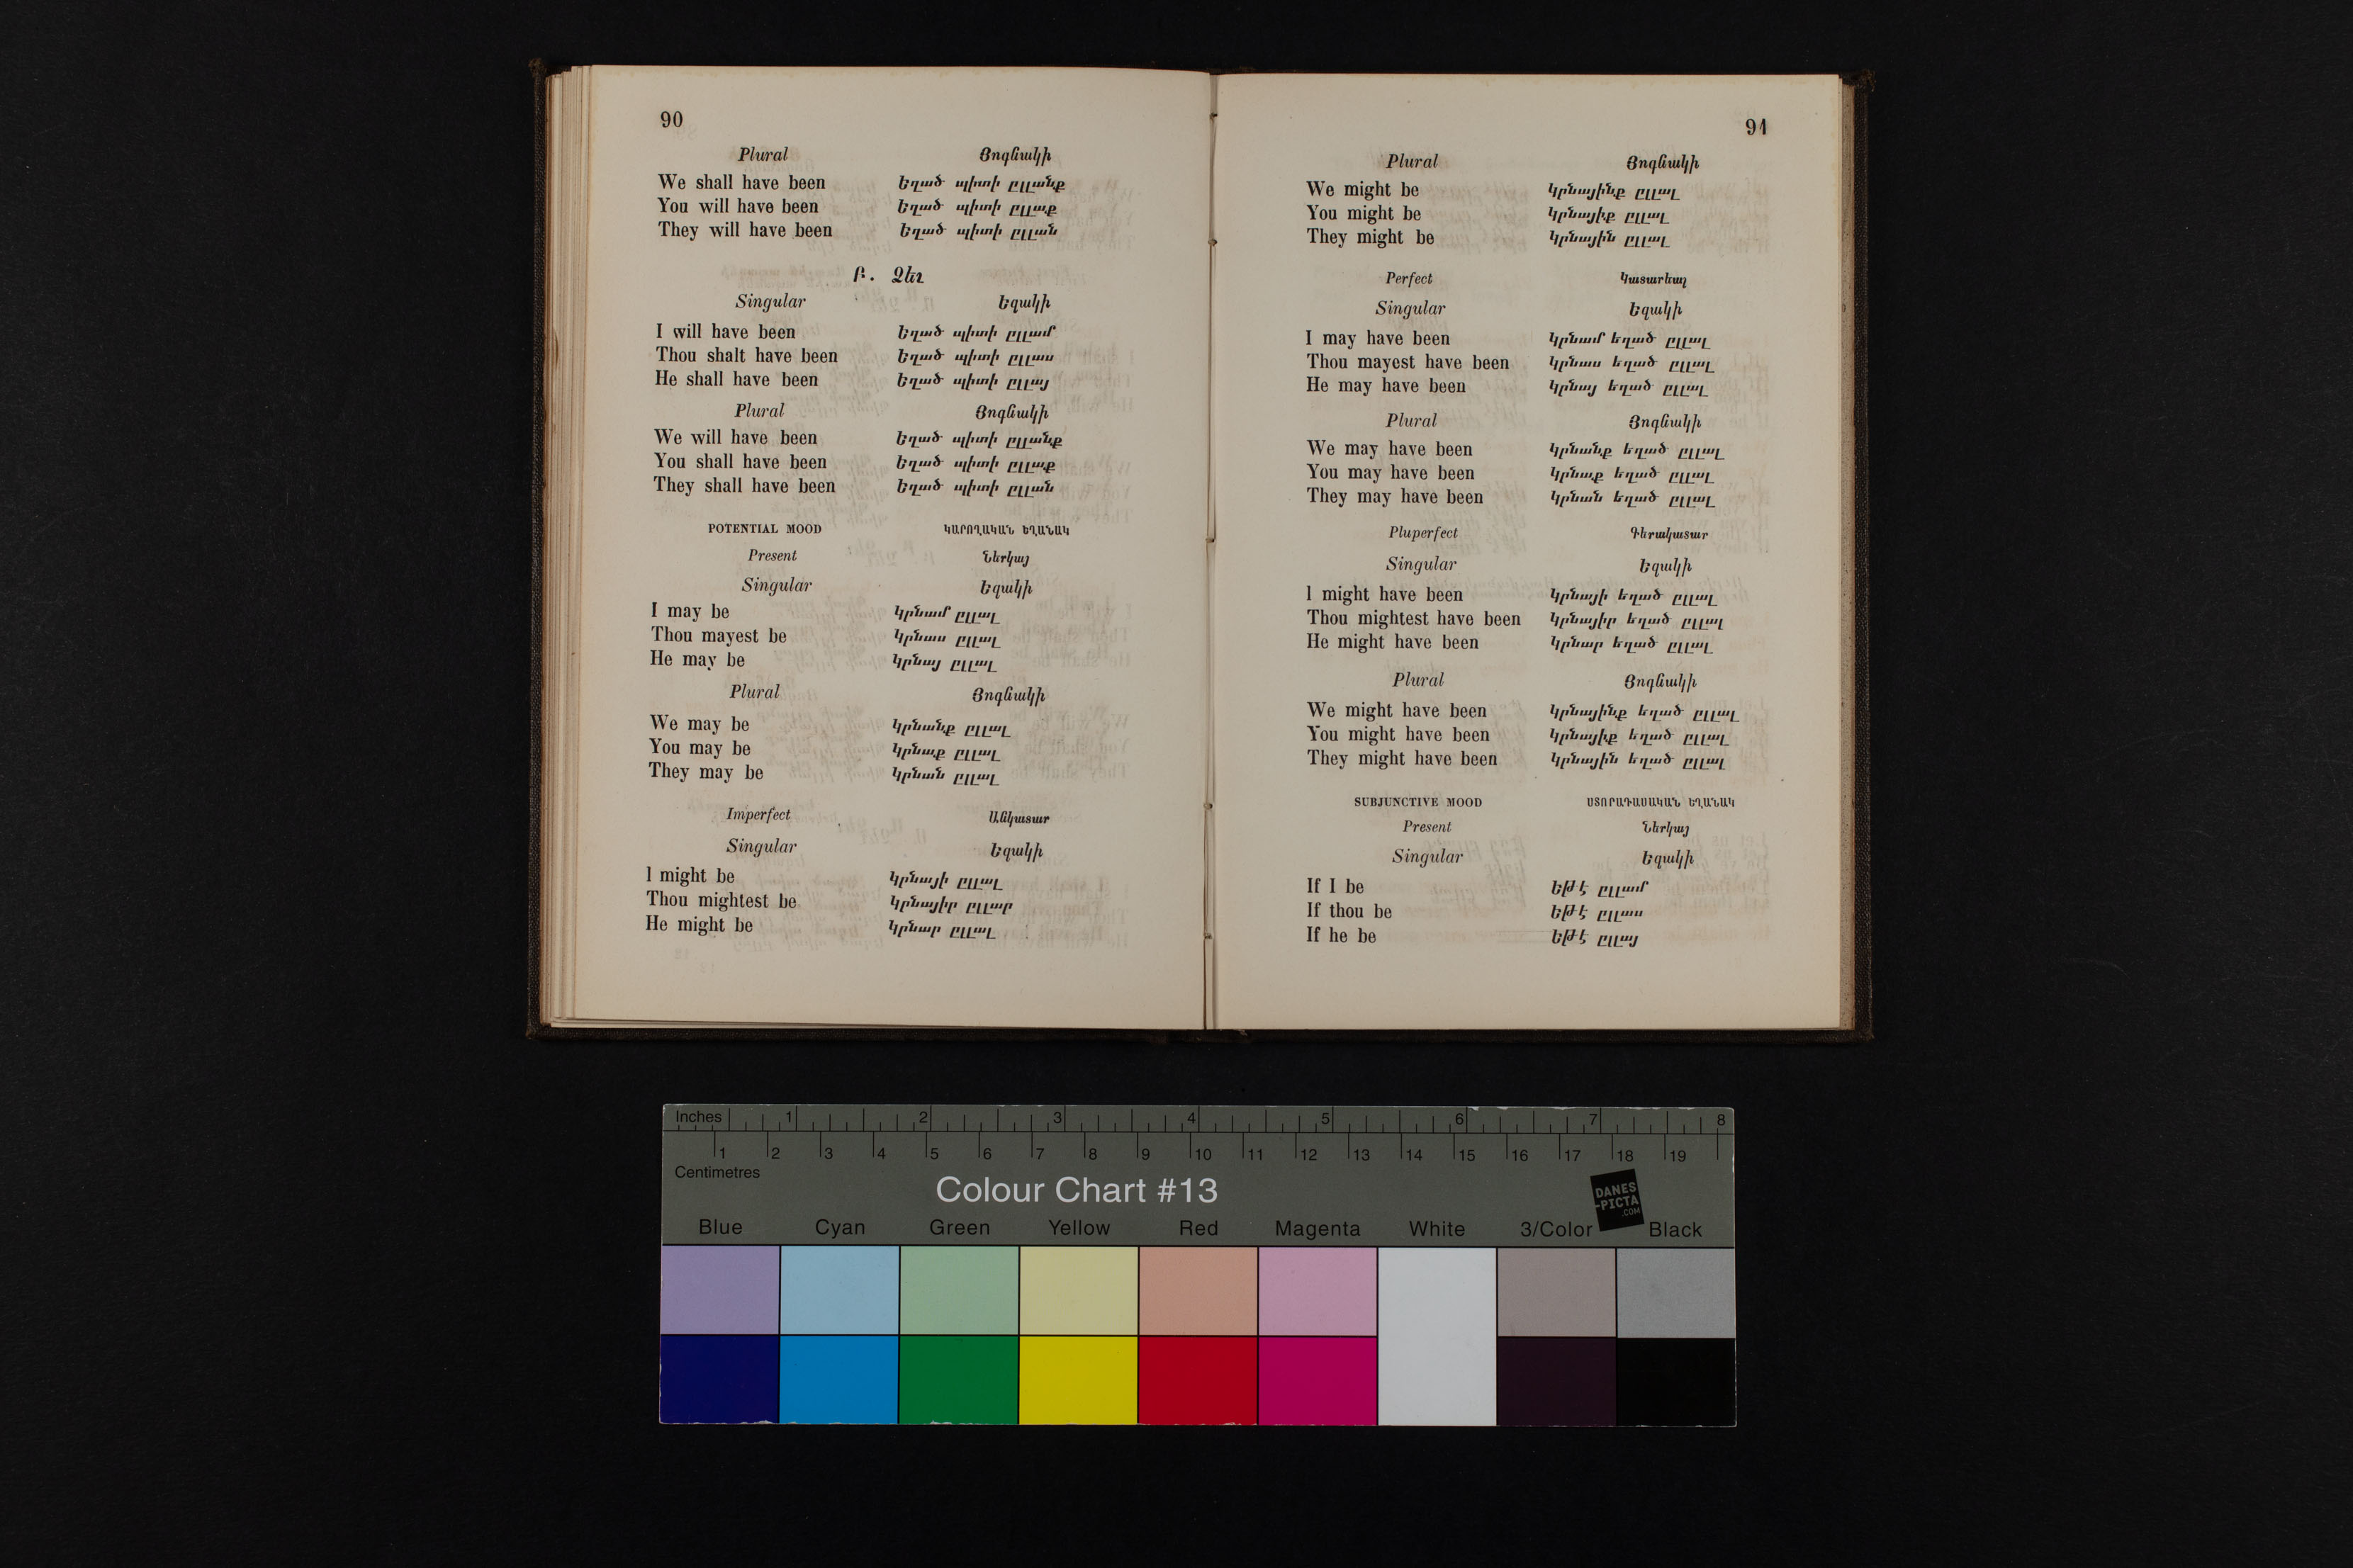 90
Plural Յոգնակի
We shall have been Եղած պիտի ըլլանք
You will have been Եղած պիտի ըլլաք
They will have been Եղած պիտի ըլլան
Բ. Ձեւ
Singular Եզակի
I will have been Եղած պիտի ըլլամ
Thou shalt have been Եղած պիտի ըլլաս
He shall have been Եղած պիտի ըլլայ
Plural Յոգնակի
We will have been Եղած պիտի ըլլանք
You shall have been Եղած պիտի ըլլաք
They shall have been Եղած պիտի ըլլան
POTENTIAL MOOD ԿԱՐՈՂԱԿԱՆ ԵՂԱՆԱԿ
Present Ներկայ
Singular Եզակի
I may be Կրնամ ըլլալ
Thou mayest be Կրնաս ըլլալ
He may be Կրնայ ըլլալ
Plural Յոգնակի
We may be Կրնանք ըլլալ
You may be Կրնաք ըլլալ
They may be Կրնան ըլլալ
Imperfect Անկատար
Singular Եզակի
I might be Կրնայի ըլլալ
Thou mightest be Կրնայիր ըլլար
He might be Կրնար ըլլալ
91
Plural Յոգնակի
We might be Կրնայինք ըլլալ
You might be Կրնայիք ըլլալ
They might be Կրնային ըլլալ
Perfect Կատարեալ
Singular Եզակի
I may have been Կրնամ եղած ըլլալ
Thou mayest have been Կրնաս եղած ըլլալ
He may have been Կրնայ եղած ըլլալ
Plural Յոգնակի
We may have been Կրնանք եղած ըլլալ
You may have been Կրնաք եղած ըլլալ
They may have been Կրնան եղած ըլլալ
Pluperfect Գերակատար
Singular Եզակի
I might have been Կրնայի եղած ըլլալ
Thou mightest have been Կրնայիր եղած ըլլալ
He might have been Կրնար եղած ըլլալ
Plural Յոգնակի
We might have been Կրնայինք եղած ըլլալ
You might have been Կրնայիք եղած ըլլալ
They might have been Կրնային եղած ըլլալ
SUBJUNCTIVE MOOD ՍՏՈՐԱԴԱՍԱԿԱՆ ԵՂԱՆԱԿ
Present Ներկայ
Singular Եզակի
If I be Եթէ ըլլամ
If thou be Եթէ ըլլաս
If he be Եթէ ըլլայ
Inches 1 2 3 4 5 6 7 8
1 2 3 4 5 6 7 8 9 10 11 12 13 14 15 16 17 18 19
Centimetres
Colour Chart #13
DANES
-PICTA
.COM
Blue Cyan Green Yellow Red Magenta White 3/Color Black